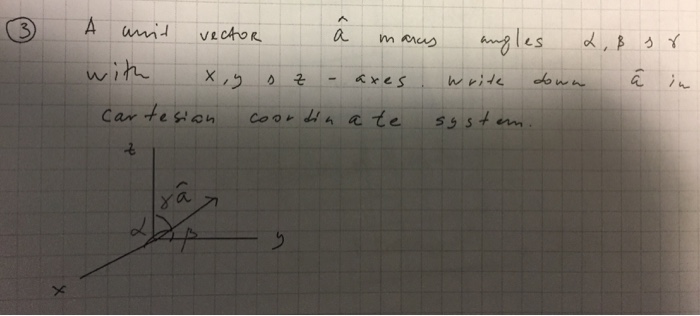 ③ A unit vector â makes angles α, β, γ
with x, y, z - axes. Write down â in
cartesion coordinate system.
z
γ â
α β y
x